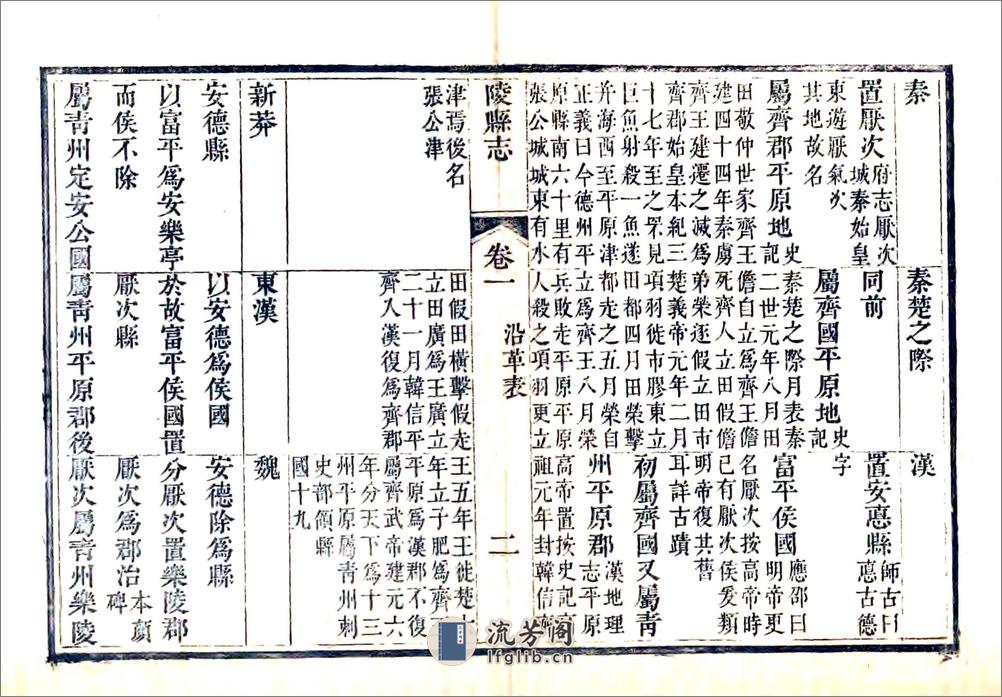 秦
置厭次
府志厭次
城秦始皇
東遊厭氣次
其地故名
屬齊郡平原地
史
記
田敬仲世家齊王
建四十四年秦虜
齊王建遷之滅爲
齊郡始皇本紀三
十七年至之罘見
巨魚射殺一魚遂
并海西至平原津
正義曰今德州平
原縣南六十里有
張公城城東有水
津焉後名
張公津
秦楚之際
同前
屬齊國平原地
史
記
秦楚之際月表秦
二世元年八月田
儋自立爲齊王儋
死齊人立田假儋
弟榮逐假立田市
楚義帝元年二月
項羽徙市膠東立
田都四月田榮擊
都走之五月榮自
立爲齊王八月榮
兵敗走平原平原
人殺之項羽更立
田假田橫擊假走
立田廣爲王廣立
二十一月韓信平
齊入漢復爲齊郡
漢
置安悳縣
師古曰
悳古德
字
富平侯國
應邵曰
明帝更
名厭次按高帝時
已有厭次侯爰類
明帝復其舊
耳詳古蹟
初屬齊國又屬青
州平原郡
漢地理
志平原
高帝置按史記高
祖元年封韓信齊
王五年王徙楚六
年立子肥爲齊
平原爲漢郡不復
屬齊武帝建元六
年分天下爲十三
州平原屬青州刺
史部領縣
國十九
陵縣志
卷一
沿革表
二
新莽
安德縣
以富平爲安樂亭
而侯不除
屬青州定安公國
東漢
以安德爲侯國
於故富平侯國置
厭次縣
屬青州平原郡後
魏
安德除爲縣
分厭次置樂陵郡
厭次爲郡治
本顏
碑
厭次屬青州樂陵
流芳阁
lfglib.cn